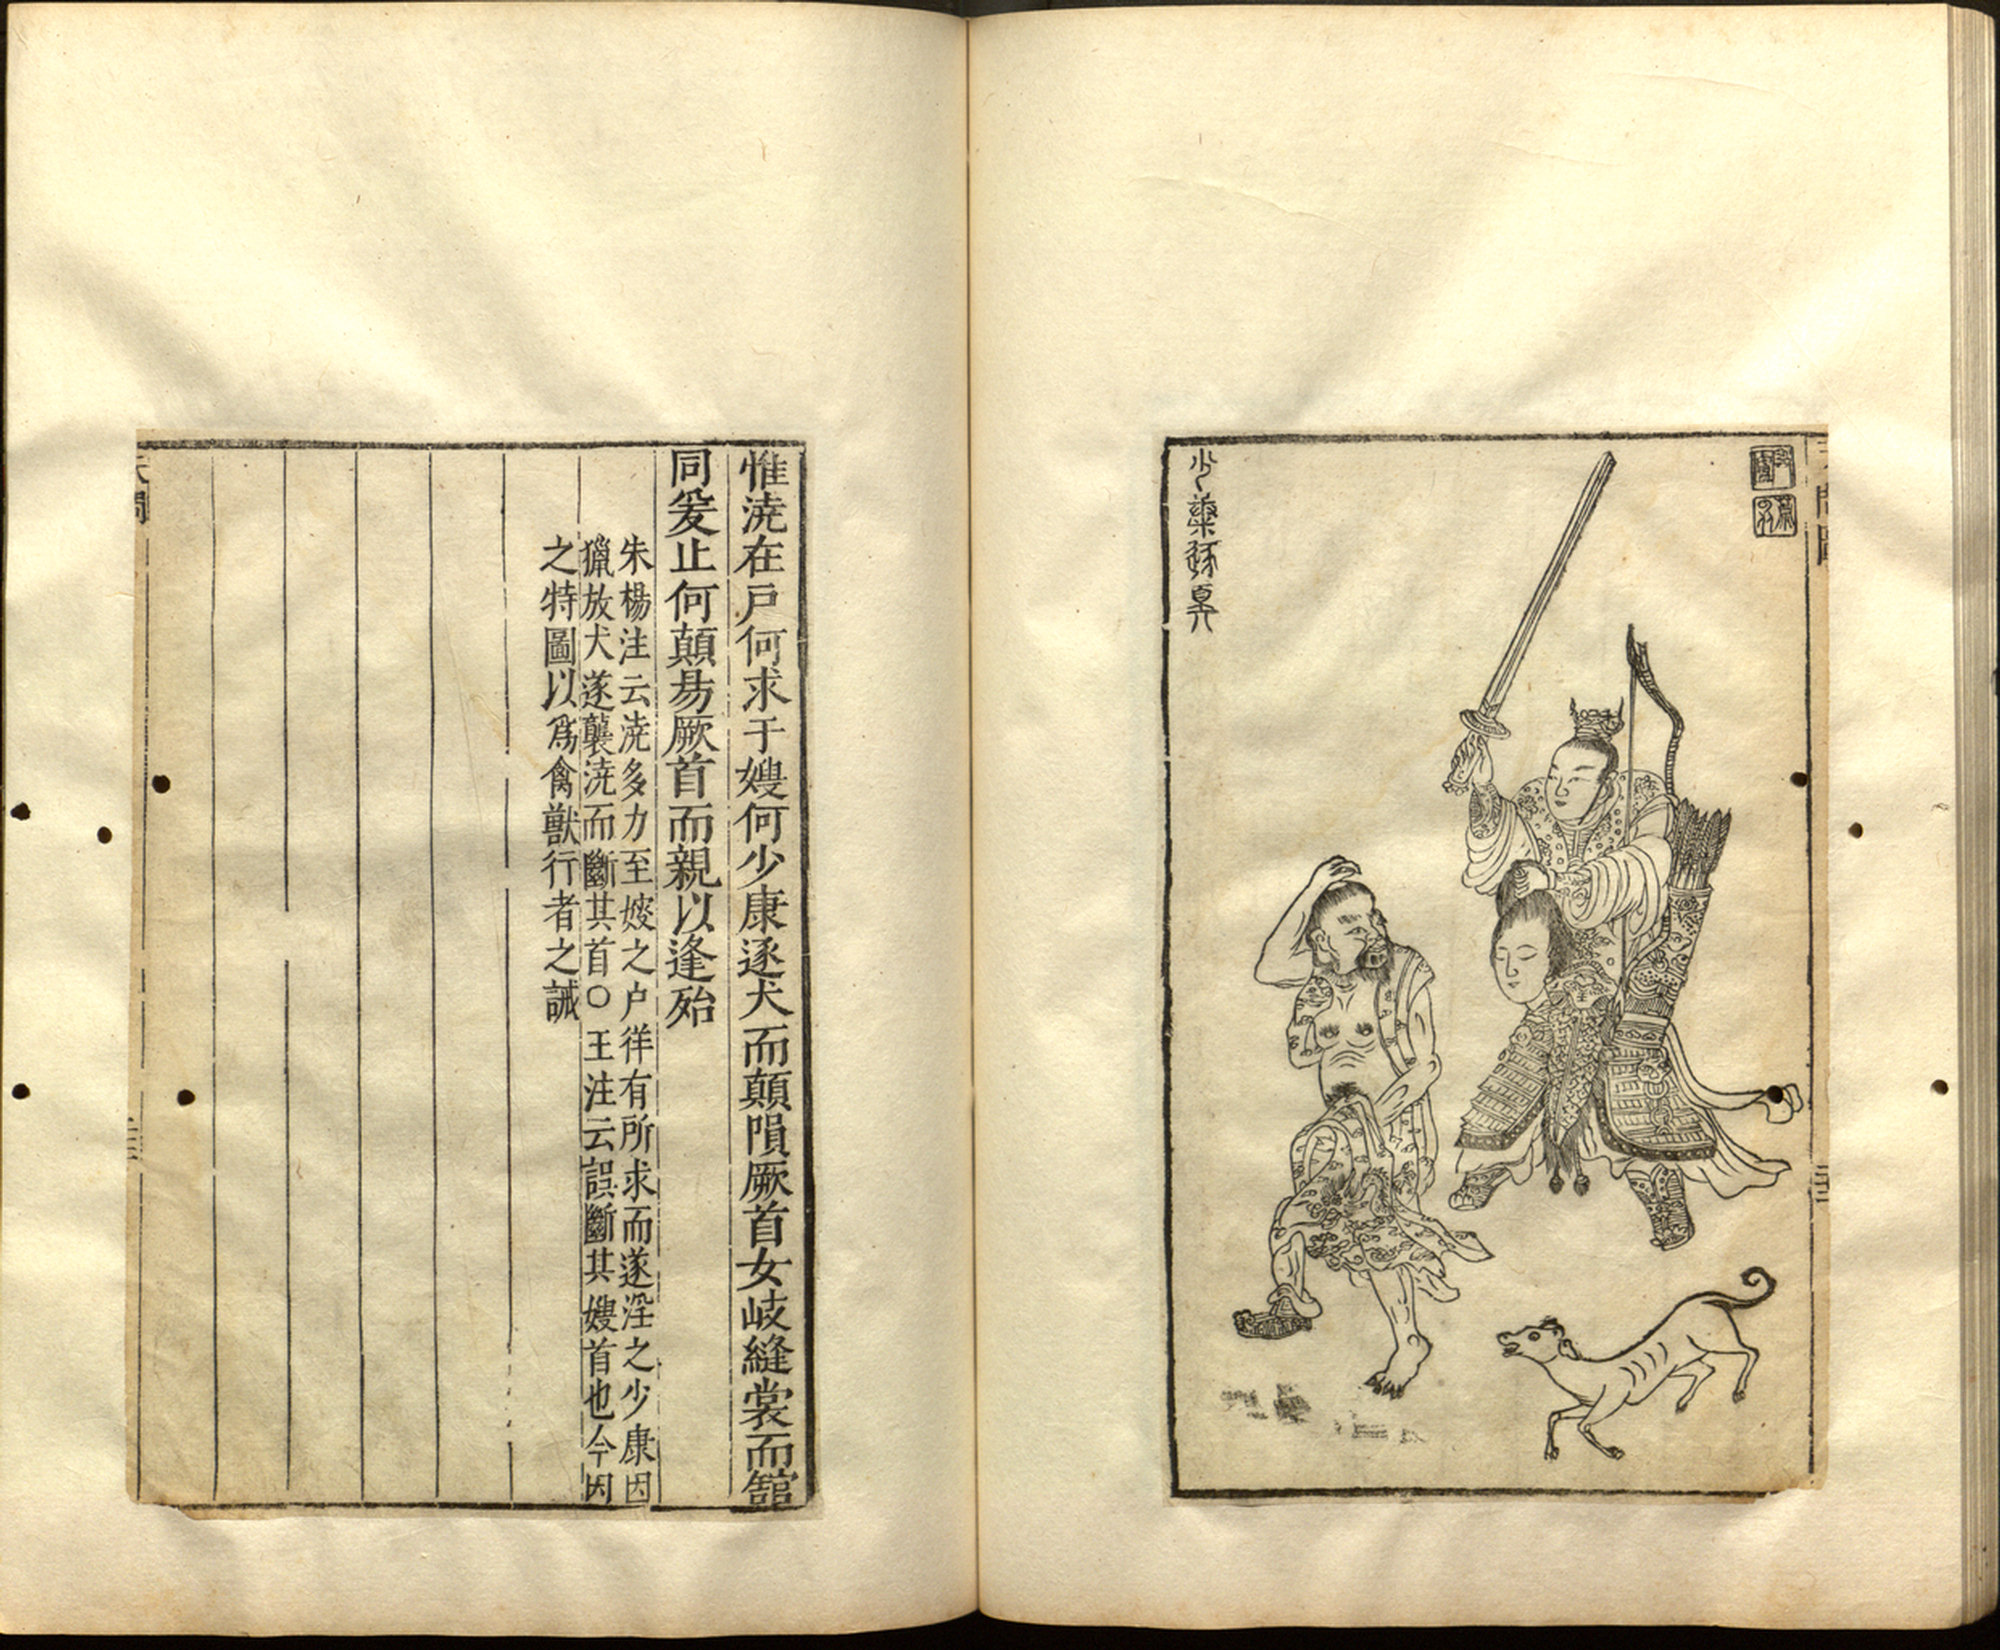 天問圖
少康逐犬
惟澆在戶何求于嫂何少康逐犬而顛隕厥首女岐縫裳而館
同爰止何顛易厥首而親以逢殆
朱楊注云澆多力至嫂之户徉有所求而遂淫之少康因
獵放犬遂襲澆而斷其首○王注云誤斷其嫂首也今因
之特圖以爲禽獸行者之誡
天問